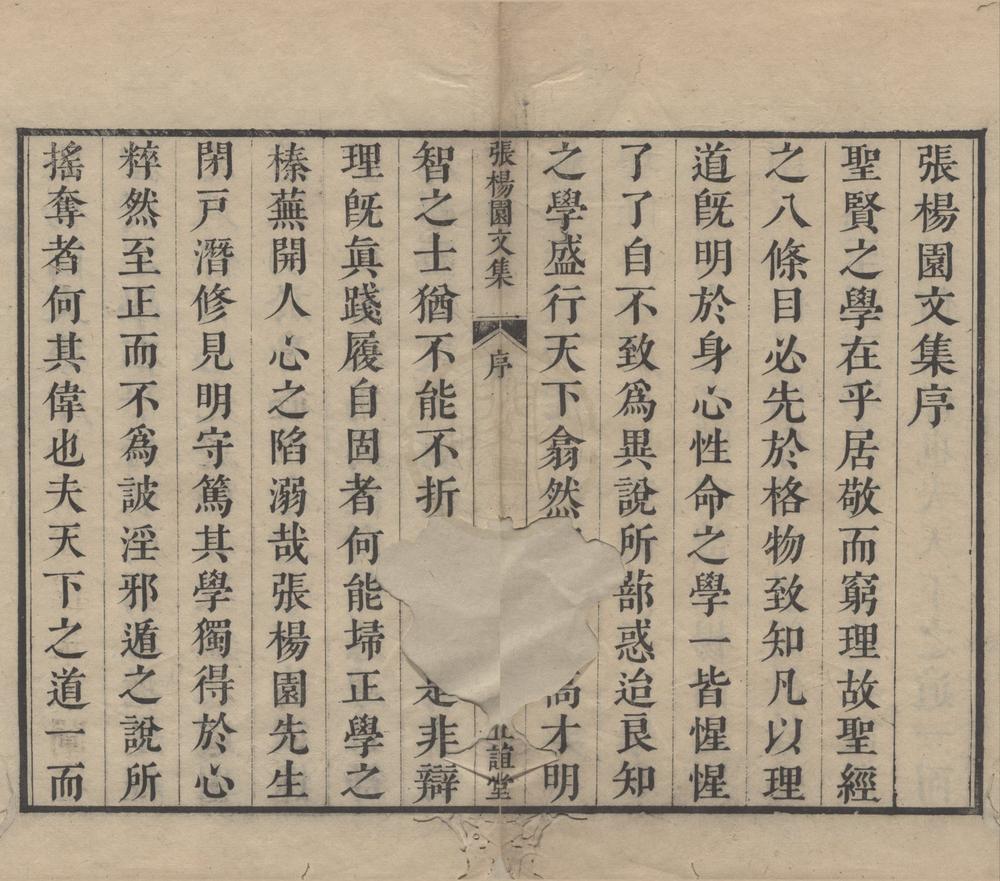 張楊園文集序
聖賢之學在乎居敬而窮理故聖經
之八條目必先於格物致知凡以理
道旣明於身心性命之學一皆惺惺
了了自不致爲異說所蔀惑迨良知
之學盛行天下翕然高才明
張楊園文集
序
正誼堂
智之士猶不能不折是非辯
理旣眞踐履自固者何能埽正學之
榛蕪開人心之陷溺哉張楊園先生
閉戸潛修見明守篤其學獨得於心
粹然至正而不爲詖淫邪遁之說所
搖奪者何其偉也夫天下之道一而